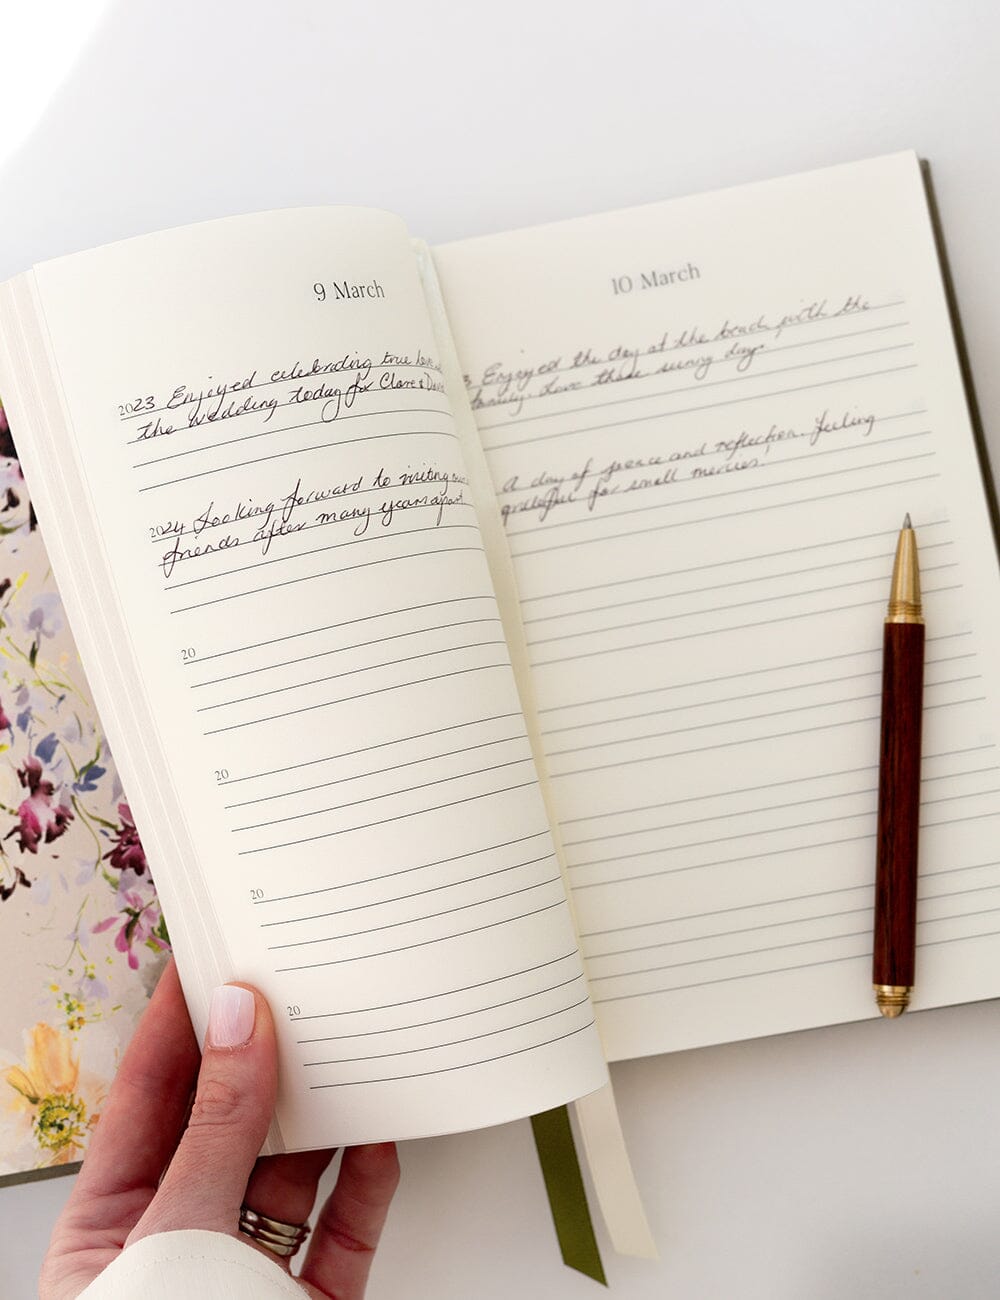 9 March
2023 Enjoyed celebrating true love
the wedding today for Clare &
2024 Looking forward to visiting our
friends after many years apart
20
20
20
20
10 March
3 Enjoyed the day at the beach with the
family. Love these sunny days.
A day of peace and reflection. Feeling
grateful for small mercies.